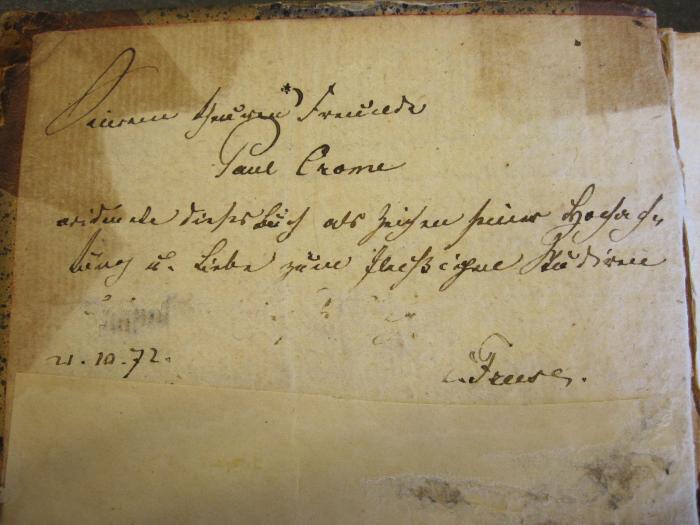 Seinem theuren Freunde
Paul Crome
widmete dieses Buch als Zeichen seiner Hochach-
tung u. Liebe zum fleißigen Studiren
72.
Freese.